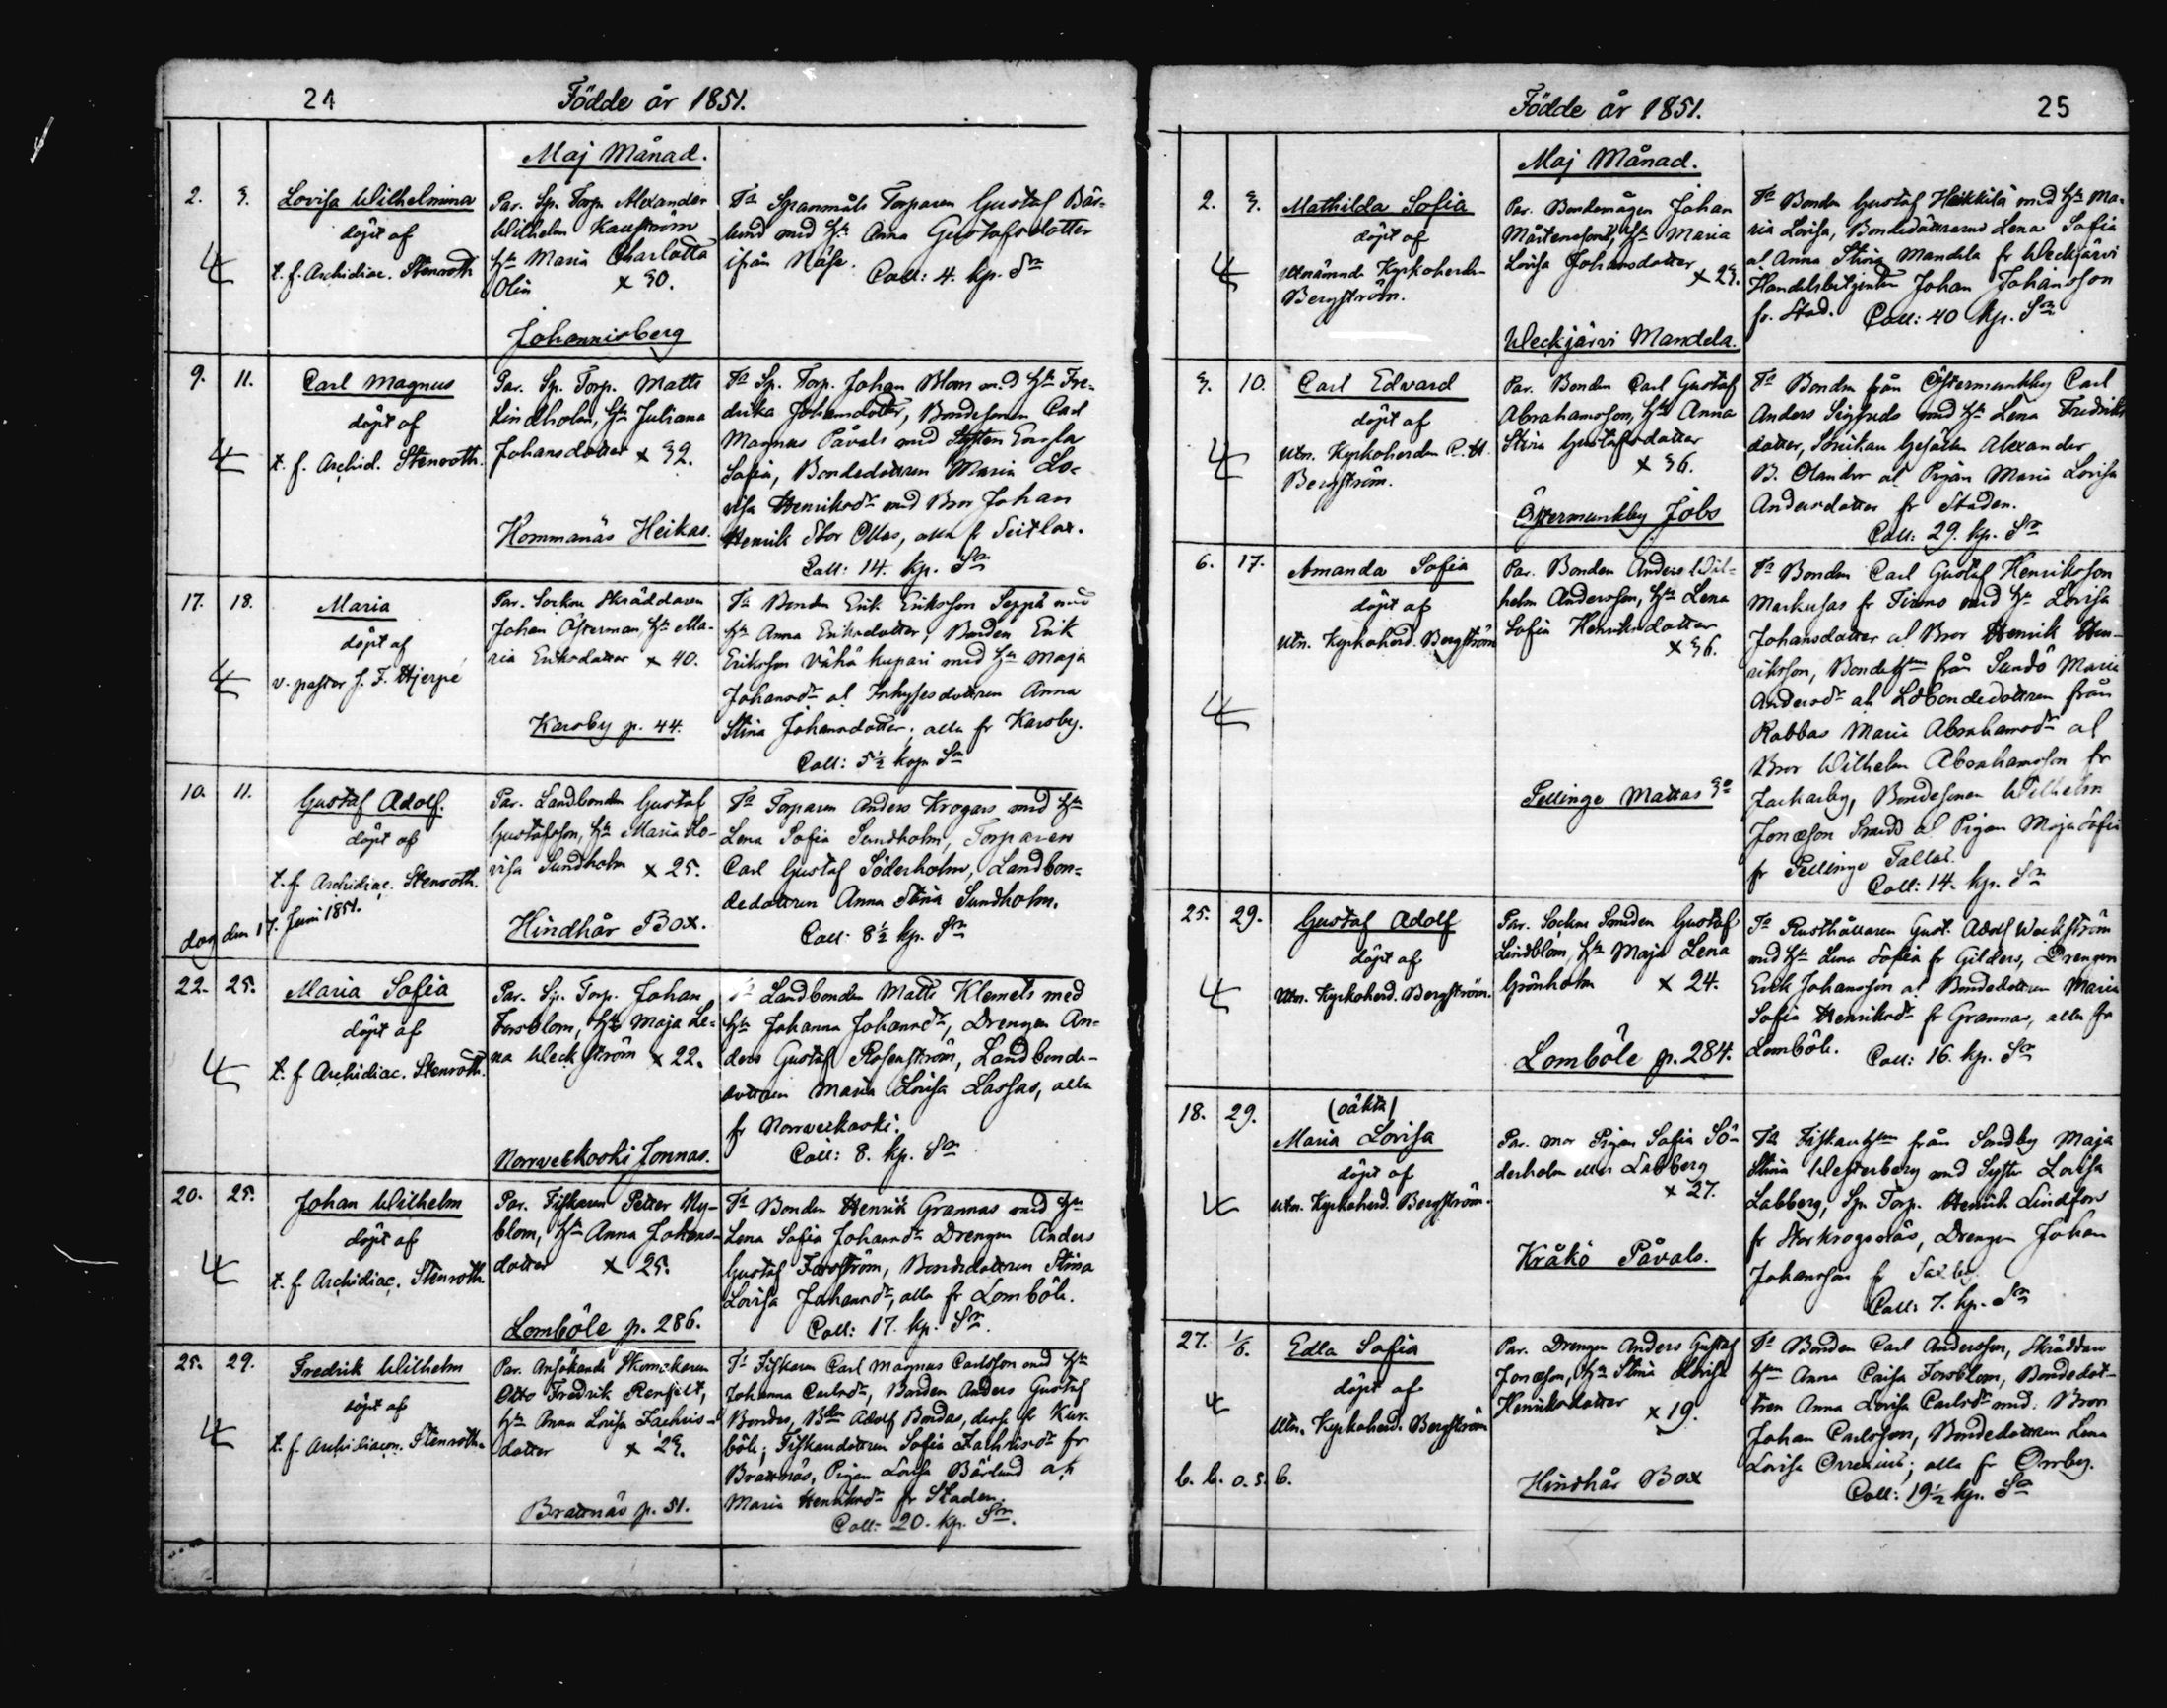 24
Födde år 1851.
Maj Månad.
2. 3. Lovisa Wilhelmina
döpt af
t. f. Archidiac. Stenroth
Par. Sp. Torp. Alexander
Wilhelm Kauström
Hu Maria Charlotta
Olin × 30.
Johannisberg
Fa Spanmåls Torparen Gustaf Bär-
lund med Hu Anna Gustafsdotter
ifrån Näse. Coll: 4. kp. Sr
9. 11. Carl Magnus
döpt af
t. f. Archid. Stenroth.
Par. Sp. Torp. Matts
Lindholm, Hu Juliana
Johansdotter × 32.
Hommanäs Heikas.
Fa Sp. Torp. Johan Blom med Hu Fre-
drika Johansdotter, Bondesonen Carl
Magnus Påvals med Systern Engla
Sofia, Bondedottren Maria Lo-
visa Henriksdr med Bror Johan
Henrik Stor Ollas, alla fr Seitlax.
Coll: 14. kp. Sr
17. 18. Maria
döpt af
v. pastor J. F. Hjerpé
Par. Sockne Skräddaren
Johan Österman, Hu Ma-
ria Eriksdotter × 40.
Karsby p. 44.
Fa Bonden Erik Eriksson Seppä med
Hu Anna Eriksdotter, Bonden Erik
Eriksson Vähä kupari med Hu Maja
Johansdr al Inhysesdottren Anna
Stina Johansdotter; alla fr Karsby.
Coll: 5½ kop Sr
10. 11. Gustaf Adolf.
döpt af
t. f. Archidiac. Stenroth.
dog den 17. Juni 1851.
Par. Landbonden Gustaf
Gustafsson, Hu Maria Lo-
visa Sundholm × 25.
Hindhår Box.
Fa Torparen Anders Krogars med Hu
Lena Sofia Sundholm, Torparen
Carl Gustaf Söderholm, Landbon-
dedottren Anna Stina Sundholm.
Coll: 8½ kp. Sr
22. 25. Maria Sofia
döpt af
t. f. Archidiac. Stenroth.
Par. Sp. Torp. Johan
Forsblom, Hu Maja Le-
na Weckström × 22.
Norrveckoski Jonnas.
Fa Landbonden Matts Klemets med
Hu Johanna Johansdr, Drengen An-
ders Gustaf Rosenström, Landbonde-
dottren Maria Lovisa Lassas, alla
fr Norrveckoski.
Coll: 8. kp. Sr
20. 25. Johan Wilhelm
döpt af
t. f. Archidiac. Stenroth
Par. Fiskaren Petter Ny-
blom, Hu Anna Johans-
dotter × 25.
Lomböle p. 286.
Fa Bonden Henrik Grannas med Hu
Lena Sofia Johansdr Drengen Anders
Gustaf Forsström, Bondedottren Stina
Lovisa Johansdr, alla fr Lomböle.
Coll: 17. kp. Sr.
25. 29. Fredrik Wilhelm
döpt af
t. f. Archidiacon. Stenroth.
Par. Ansökande Skomakaren
Otto Fredrik Renfelt,
Hu Anna Lovisa Zachris-
dotter × 29.
Brattnäs p. 51.
Fa Fiskaren Carl Magnus Carlsson med Hu
Johanna Carlsdr, Bonden Anders Gustaf
Bondas, Bden Adolf Bondas, desse fr Kur-
böle; Fiskaredottren Sofia Zachrisdr fr
Brattnäs, Pigan Lovisa Bärlund och
Maria Henriksdr fr Staden.
Coll: 20. kp. Sr.
Födde år 1851.
25
Maj Månad.
2. 3. Mathilda Sofia
döpt af
Utnämnde Kyrkoherden
Bergström.
Par. Bondemågen Johan
Mårtensson, Hu Maria
Lovisa Johansdotter
× 23.
Weckjärvi Mandela.
Fa Bonden Gustaf Heikkilä med Hu Ma-
ria Lovisa, Bondedöttrarne Lena Sofia
al Anna Stina Mandela fr Weckjärvi
Handelsbetjenten Johan Johansson
fr. Stad. Coll: 40 kp. Sr
3. 10. Carl Edvard
döpt af
Utn. Kyrkoherden
Bergström.
Par. Bonden Carl Gustaf
Abrahamsson, Hu Anna
Stina Gustafsdotter
× 36.
Östermunkby Jobs
Fa Bonden från Östermunkby Carl
Anders Sigfreds med Hu Lena Fredriks
dotter, Snickare Gesällen Alexander
B. Olander al Pigan Maria Lovisa
Andersdotter fr Staden.
Coll: 29. kp. Sr
6. 17. Amanda Sofia
döpt af
Utn. Kyrkoherd. Bergström
Par. Bonden Anders Wil-
helm Andersson, Hu Lena
Sofia Henriksdotter
× 36.
Pellinge Mattas
Fa Bonden Carl Gustaf Henriksson
Markusas fr Tirmo med Hu Lovisa
Johansdotter al Bror Henrik Hen-
riksson, från Sundö Maria
Andersdr al Lbondedottren från
Rabbas Maria Abrahamsdr al
Bror Wilhelm Abrahamsson fr
Jackarby, Bondesonen Wilhelm
Jonasson al Pigan Maja Sofia
fr Pellinge Tallas.
Coll: 14. kp. Sr
25. 29. Gustaf Adolf
döpt af
Utn. Kyrkoherd. Bergström.
Par. Sockne Smeden Gustaf
Lindblom, Hu Maja Lena
Grönholm × 24.
Lomböle p. 284.
Fa Rusthållaren Gust. Adolf Weckström
med Hu Lena Sofia fr Gilders, Drengen
Erik Johansson al Bondedottren Maria
Sofia Henriksdr fr Grannas, alla fr
Lomböle. Coll: 16. kp. Sr
18. 29. (oäkta)
Maria Lovisa
döpt af
Utn. Kyrkoherd. Bergström.
Par. mor Pigan Sofia Sö-
derholm eller Labberg
× 27.
Kråkö Påvals.
Fa från Sandby Maja
Stina Westerberg med Syster Lovisa
Labberg, Sp. Torp. Henrik Lindfors
fr Storkrogsnäs, Drengen Johan
Johansson fr
Coll: 7. kp. Sr
27. 1/6. Edla Sofia
döpt af
Utn. Kyrkoherd. Bergström
b. b. o. s. b.
Par. Drengen Anders Gustaf
Jonasson, Hu Stina Lovisa
Henriksdotter × 19.
Hindhår Box
Fa Bonden Carl Andersson, Skräddare
Anna Caisa Forsblom, Bondedot-
tren Anna Lovisa Carlsdr med Bror
Johan Carlsson, Bondedottren Lena
Lovisa Orrenius; alla fr Orrby.
Coll: 19½ kp. Sr